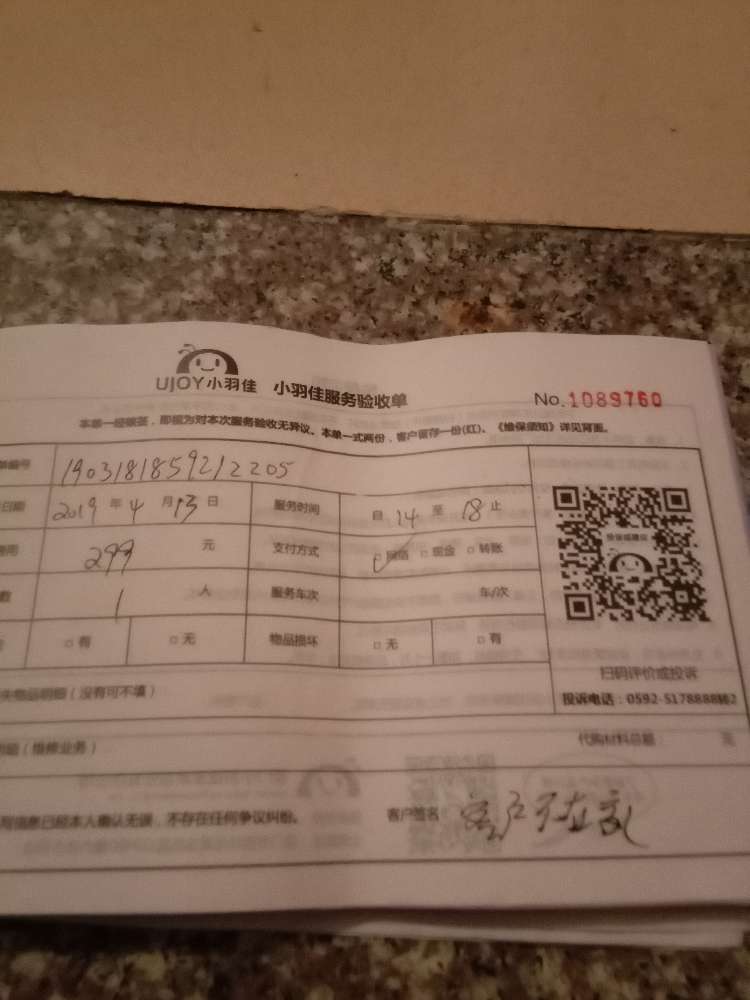 UJOY小羽佳 小羽佳服务验收单 No.1089760
本单一经签, 即视为对本次服务验收无异议。本单一式两份, 客户留存一份(红)。《维保须知》详见背面。
单编号 1903181859212205
日期 2019 年 4 月 13 日 服务时间 自 14 至 18 止
费用 299 元 支付方式 ☑网络 □现金 □转账
数 1 人 服务车次 车/次
□有 □无 物品损坏 □无 □有
投诉或建议
扫码评价或投诉
投诉电话:0592-5178888转2
失物品明细(没有可不填)
明细(维修业务) 代购材料总额: 元
信息已经本人确认无误,不存在任何争议纠纷。 客户签名: 客户不在家